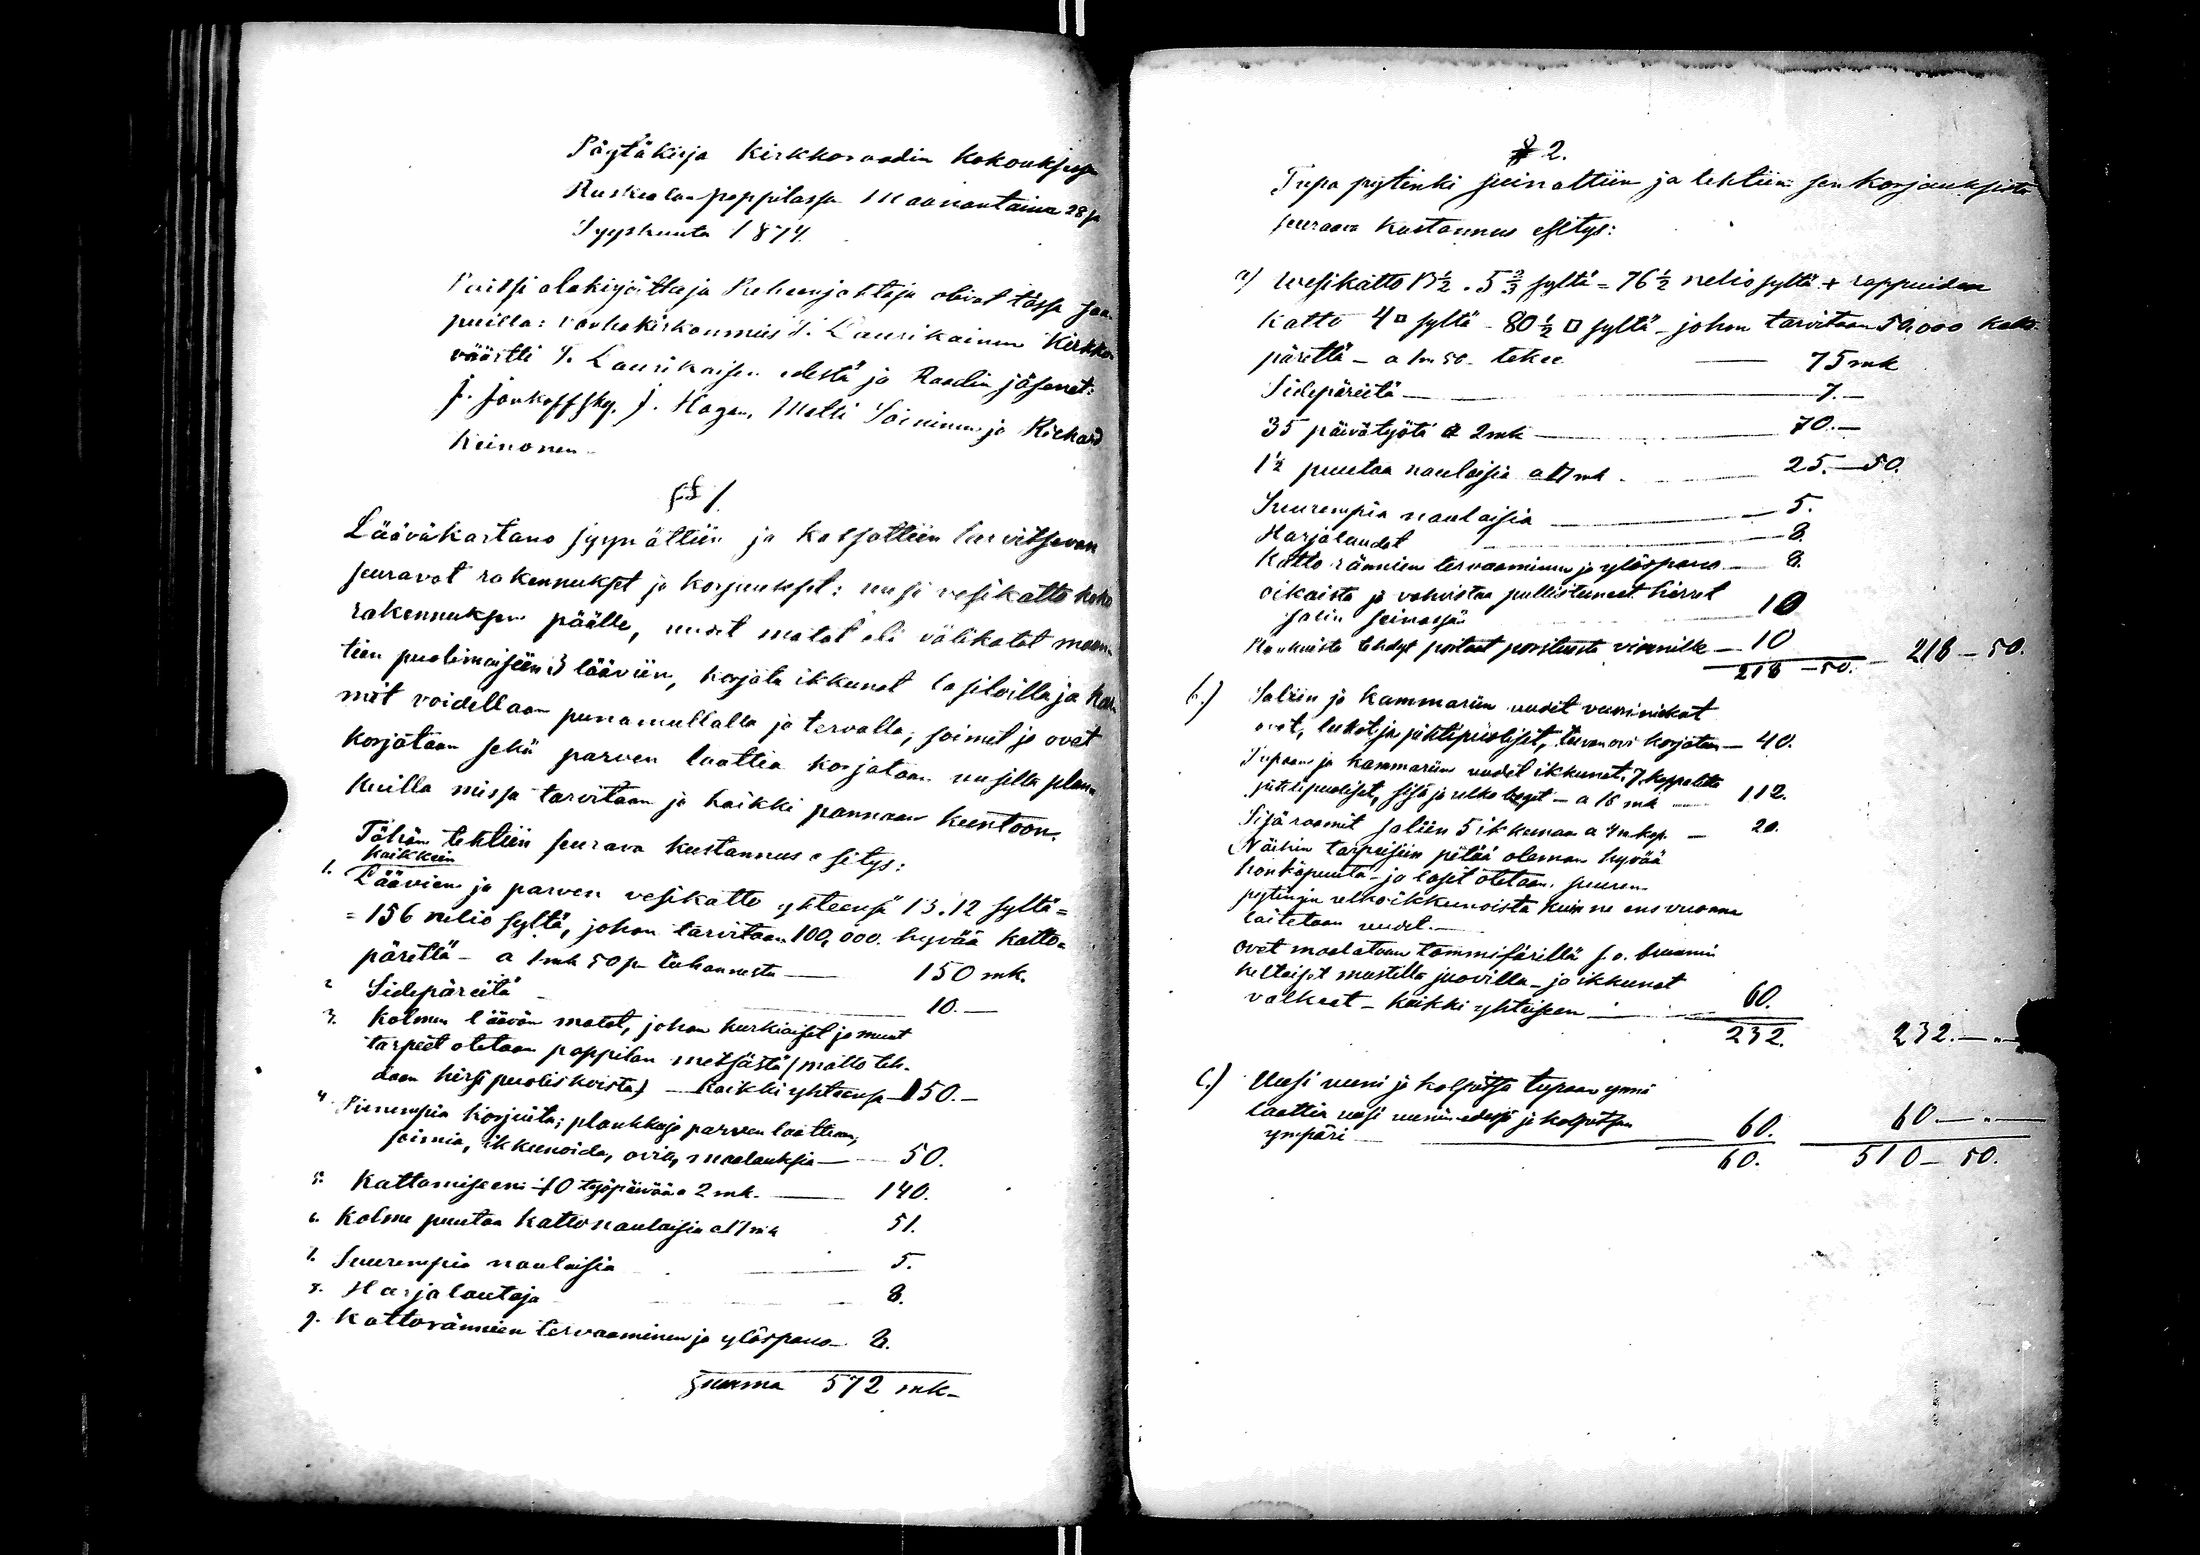 Pöytäkirja Kirkkoraadin Kokouksessa
Ruskealan pappilassa Maanantaina 28 p.
Syyskuuta 1874.
Paitsi alakirjoittaja Puheenjohtaja olivat tässä saa-
puilla: vanhakirkonmies T. Laurikainen Kirkko-
väärtti T. Laurikaisen edestä ja Raadin jäsenet:
J. Jonkoffsky, J. Hagan, Matti Soininen ja Richard
Keinonen.
§ 1.
Läävakartano syynättiin ja katsottiin tarvitsevan
seuravat rakennukset ja korjuukset: uusi vesikatto koko
rakennuksen päälle, uudet matot eli välikatot
puolimaisiin 3 lääviin, korjata ikkunat lasiloilla ja
voidellaan punamullalla ja tervalla, soimet ja ovet
korjataan sekä parven laattia korjataan uusilla plan-
kuilla missä tarvitaan ja kaikki pannaan kuntoon.
Tähän tehtiin seurava kustannus esitys:
kaikkein
1. Läävien ja parven vesikatto yhteensä 13.12 syltä =
= 156 nelio syltä, johon tarvitaan 100,000. hyvää katto-
pärettä - a 1 mk 50 p tuhannesta — 150 mk.
2 Sidepäreitä — 10.—
3. Kolmen läävän matot, johon kurkiaiset ja muut
tarpeet otetaan pappilan metsästä (matto teh-
dään hirsi puoliskoista) — Kaikki yhteensä — 150.—
4 Pienempia korjuita; plankkuja parven laattiaan,
soimia, ikkunoida, ovia, maalauksia — 50.
5. Kattamiseen 70 työpäivää a 2 mk. — 140.
6. Kolme puutaa kattonaulaisia a 17 mk 51.
7. Suurempia naulaisia — 5.
8. Harjalautoja — 8.
9. Kattorännien tervaaminen ja ylöspano — 8.
Summa 572 mk—
§ 2.
Tupa pytinki syinattiin ja tehtiin sen korjauksista
seuraava kustannus esitys:
a) Wesikatto 13½ . 5⅔ syltä = 76½ nelio syltä + rappuiden
Katto 4 □ syltä - 80½ □ syltä - johon tarvitaan 50,000 katto-
pärettä - a 1 m 50. tekee — 75 mk
Sidepäreitä — 7.—
35 päivätyötä a 2 mk — 70.—
1½ puutaa naulaisia a 17 mk — 25.—50.
Suurempia naulaisia — 5.
Harjalaudat — 8.
Katto rännien tervaaminen ja ylöspano — 8.
oikaista ja vahvistaa pullistuneet hirret
salin seinässä — 10
tehdyt portaat porstuasta vinnille — 10
218 — 50. — 218 — 50.
b.) Saliin ja kammariin uudet
ovet, lukot ja pihtipuoliset, tuvan ovi korjataan — 40.
Tupaan ja kammariin uudet ikkunat, 7 kappaletta
pihtipuoliset, sisä ja ulko — a 16 mk — 112.
Sisä raamit saliin 5 ikkunaan a 4 m kap. — 20.
Näihin tarpeisiin pitää oleman hyvää
honkapuuta - ja lasit otetaan suuren
pytingin ulkoikkunoista kuin ne ens vuonna
laitetaan uudet.—
Ovet maalataan tammifärillä s.o. bruunin
keltaiset mustilla juovilla - ja ikkunat
valkeat - kaikki yhteiseen — 60.
232. 232.—„—
c.) Uusi uuni ja tupaan ynnä
laattia uusi uunin edessä ja
ympäri — 60. 60.—„—
60. 510 — 50.